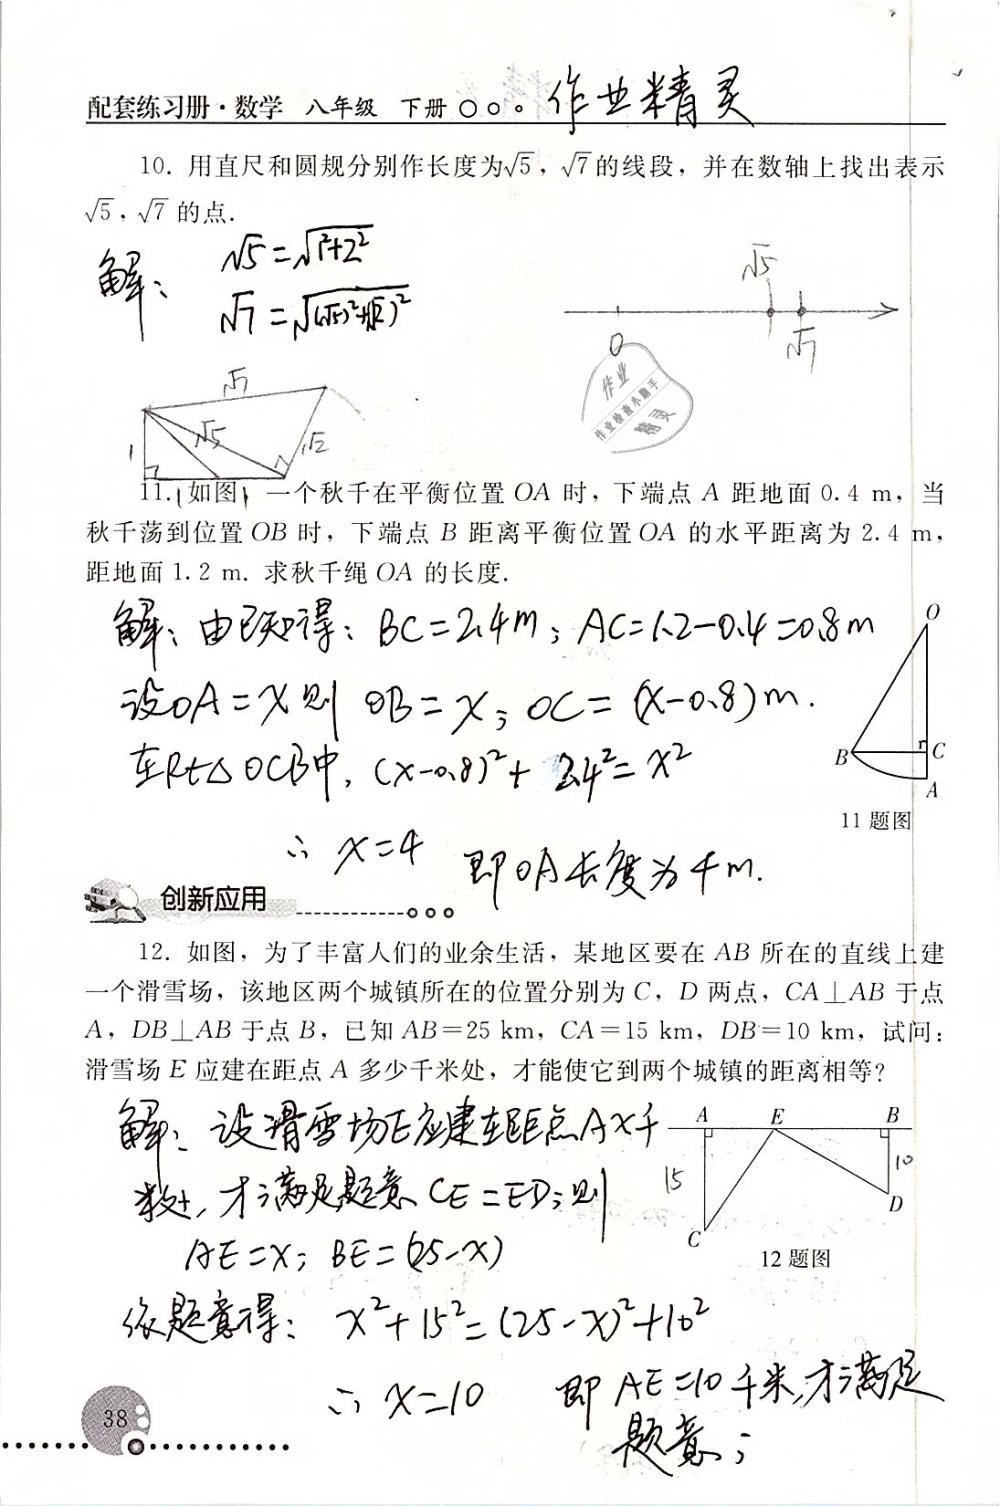 配套练习册·数学 八年级 下册 作业精灵
10. 用直尺和圆规分别作长度为√5，√7的线段，并在数轴上找出表示
√5，√7 的点.
解： √5=√(1²+2²)
√7=√((√5)²+(√2)²)
√5
0
√7
作业
作业检查小助手
精灵
√7
√5
√2
1
11. 如图，一个秋千在平衡位置 OA 时，下端点 A 距地面 0.4 m，当
秋千荡到位置 OB 时，下端点 B 距离平衡位置 OA 的水平距离为 2.4 m，
距地面 1.2 m. 求秋千绳 OA 的长度.
解：由已知得：BC=2.4m；AC=1.2-0.4=0.8m
设OA=x则 OB=x；OC=(x-0.8)m.
在Rt△OCB中，(x-0.8)²+2.4²=x²
∴ x=4 即OA长度为4m.
O
B
C
A
11 题图
创新应用
12. 如图，为了丰富人们的业余生活，某地区要在 AB 所在的直线上建
一个滑雪场，该地区两个城镇所在的位置分别为 C，D 两点，CA⊥AB 于点
A，DB⊥AB 于点 B，已知 AB=25 km，CA=15 km，DB=10 km，试问：
滑雪场 E 应建在距点 A 多少千米处，才能使它到两个城镇的距离相等？
解：设滑雪场E应建在距点A x千
米处，才满足题意 CE=ED；则
AE=x；BE=(25-x)
依题意得：x²+15²=(25-x)²+10²
∴ x=10 即AE=10千米，才满足
题意；
A E B
15
10
D
C
12 题图
38